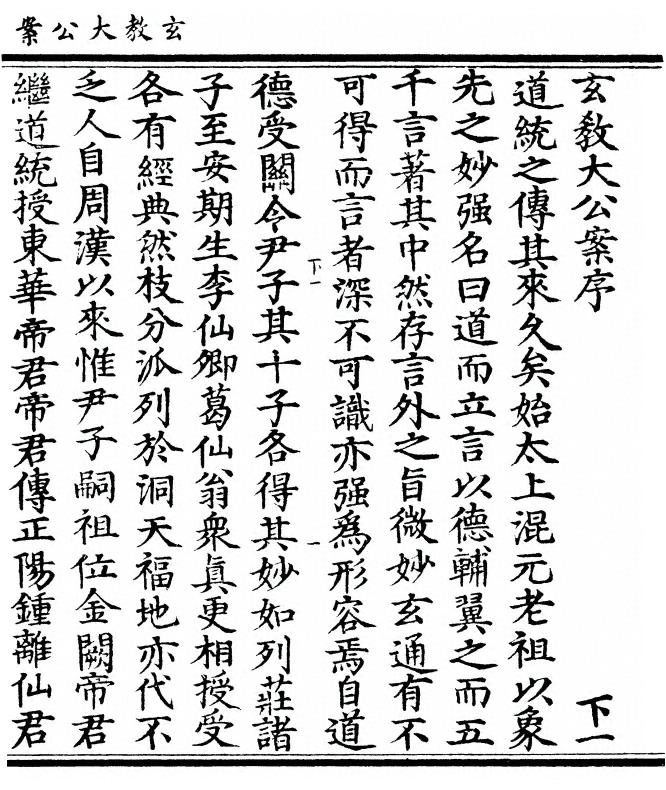 玄教大公案
玄教大公案序
下一
道統之傳其來久矣始太上混元老祖以象
先之妙强名曰道而立言以德輔翼之而五
千言著其中然存言外之旨微妙玄通有不
可得而言者深不可識亦强爲形容焉自道
下一
一
德受關令尹子其十子各得其妙如列莊諸
子至安期生李仙卿葛仙翁衆眞更相授受
各有經典然枝分派列於洞天福地亦代不
乏人自周漢以來惟尹子嗣祖位金闕帝君
繼道統授東華帝君帝君傳正陽鍾離仙君